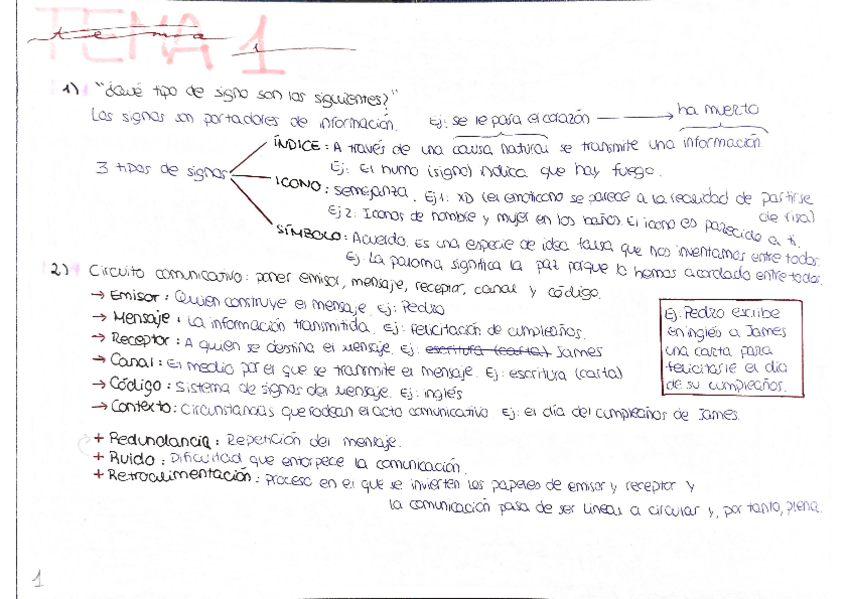 TEMA 1
tema 1
1) "¿Qué tipo de signo son los siguientes?"
Los signos son portadores de información. Ej: se le para el corazón → ha muerto
3 tipos de signos
ÍNDICE: A través de una causa natural se transmite una información.
Ej: El humo (signo) indica que hay fuego.
ICONO: semejanza. Ej1: XD (el emoticono se parece a la realidad de partirse de risa)
Ej 2: Iconos de hombre y mujer en los baños. El icono es parecido a ti.
SÍMBOLO: Acuerdo. Es una especie de idea falsa que nos inventamos entre todos.
Ej: La paloma significa la paz porque lo hemos acordado entre todos.
2) Circuito comunicativo: poner emisor, mensaje, receptor, canal y código.
→ Emisor: Quien construye el mensaje. Ej: Pedro
→ Mensaje: La información transmitida. Ej: felicitación de cumpleaños.
→ Receptor: A quien se destina el mensaje. Ej: escritura (carta). James
→ Canal: El medio por el que se transmite el mensaje. Ej: escritura (carta)
→ Código: Sistema de signos del mensaje. Ej: inglés
→ Contexto: Circunstancias que rodean el acto comunicativo Ej: el día del cumpleaños de James.
Ej: Pedro escribe
en inglés a James
una carta para
felicitarle el día
de su cumpleaños.
+ Redundancia: Repetición del mensaje.
+ Ruido: Dificultad que entorpece la comunicación.
+ Retroalimentación: proceso en el que se invierten los papeles de emisor y receptor y
la comunicación pasa de ser lineas a circular y, por tanto, plena.
1